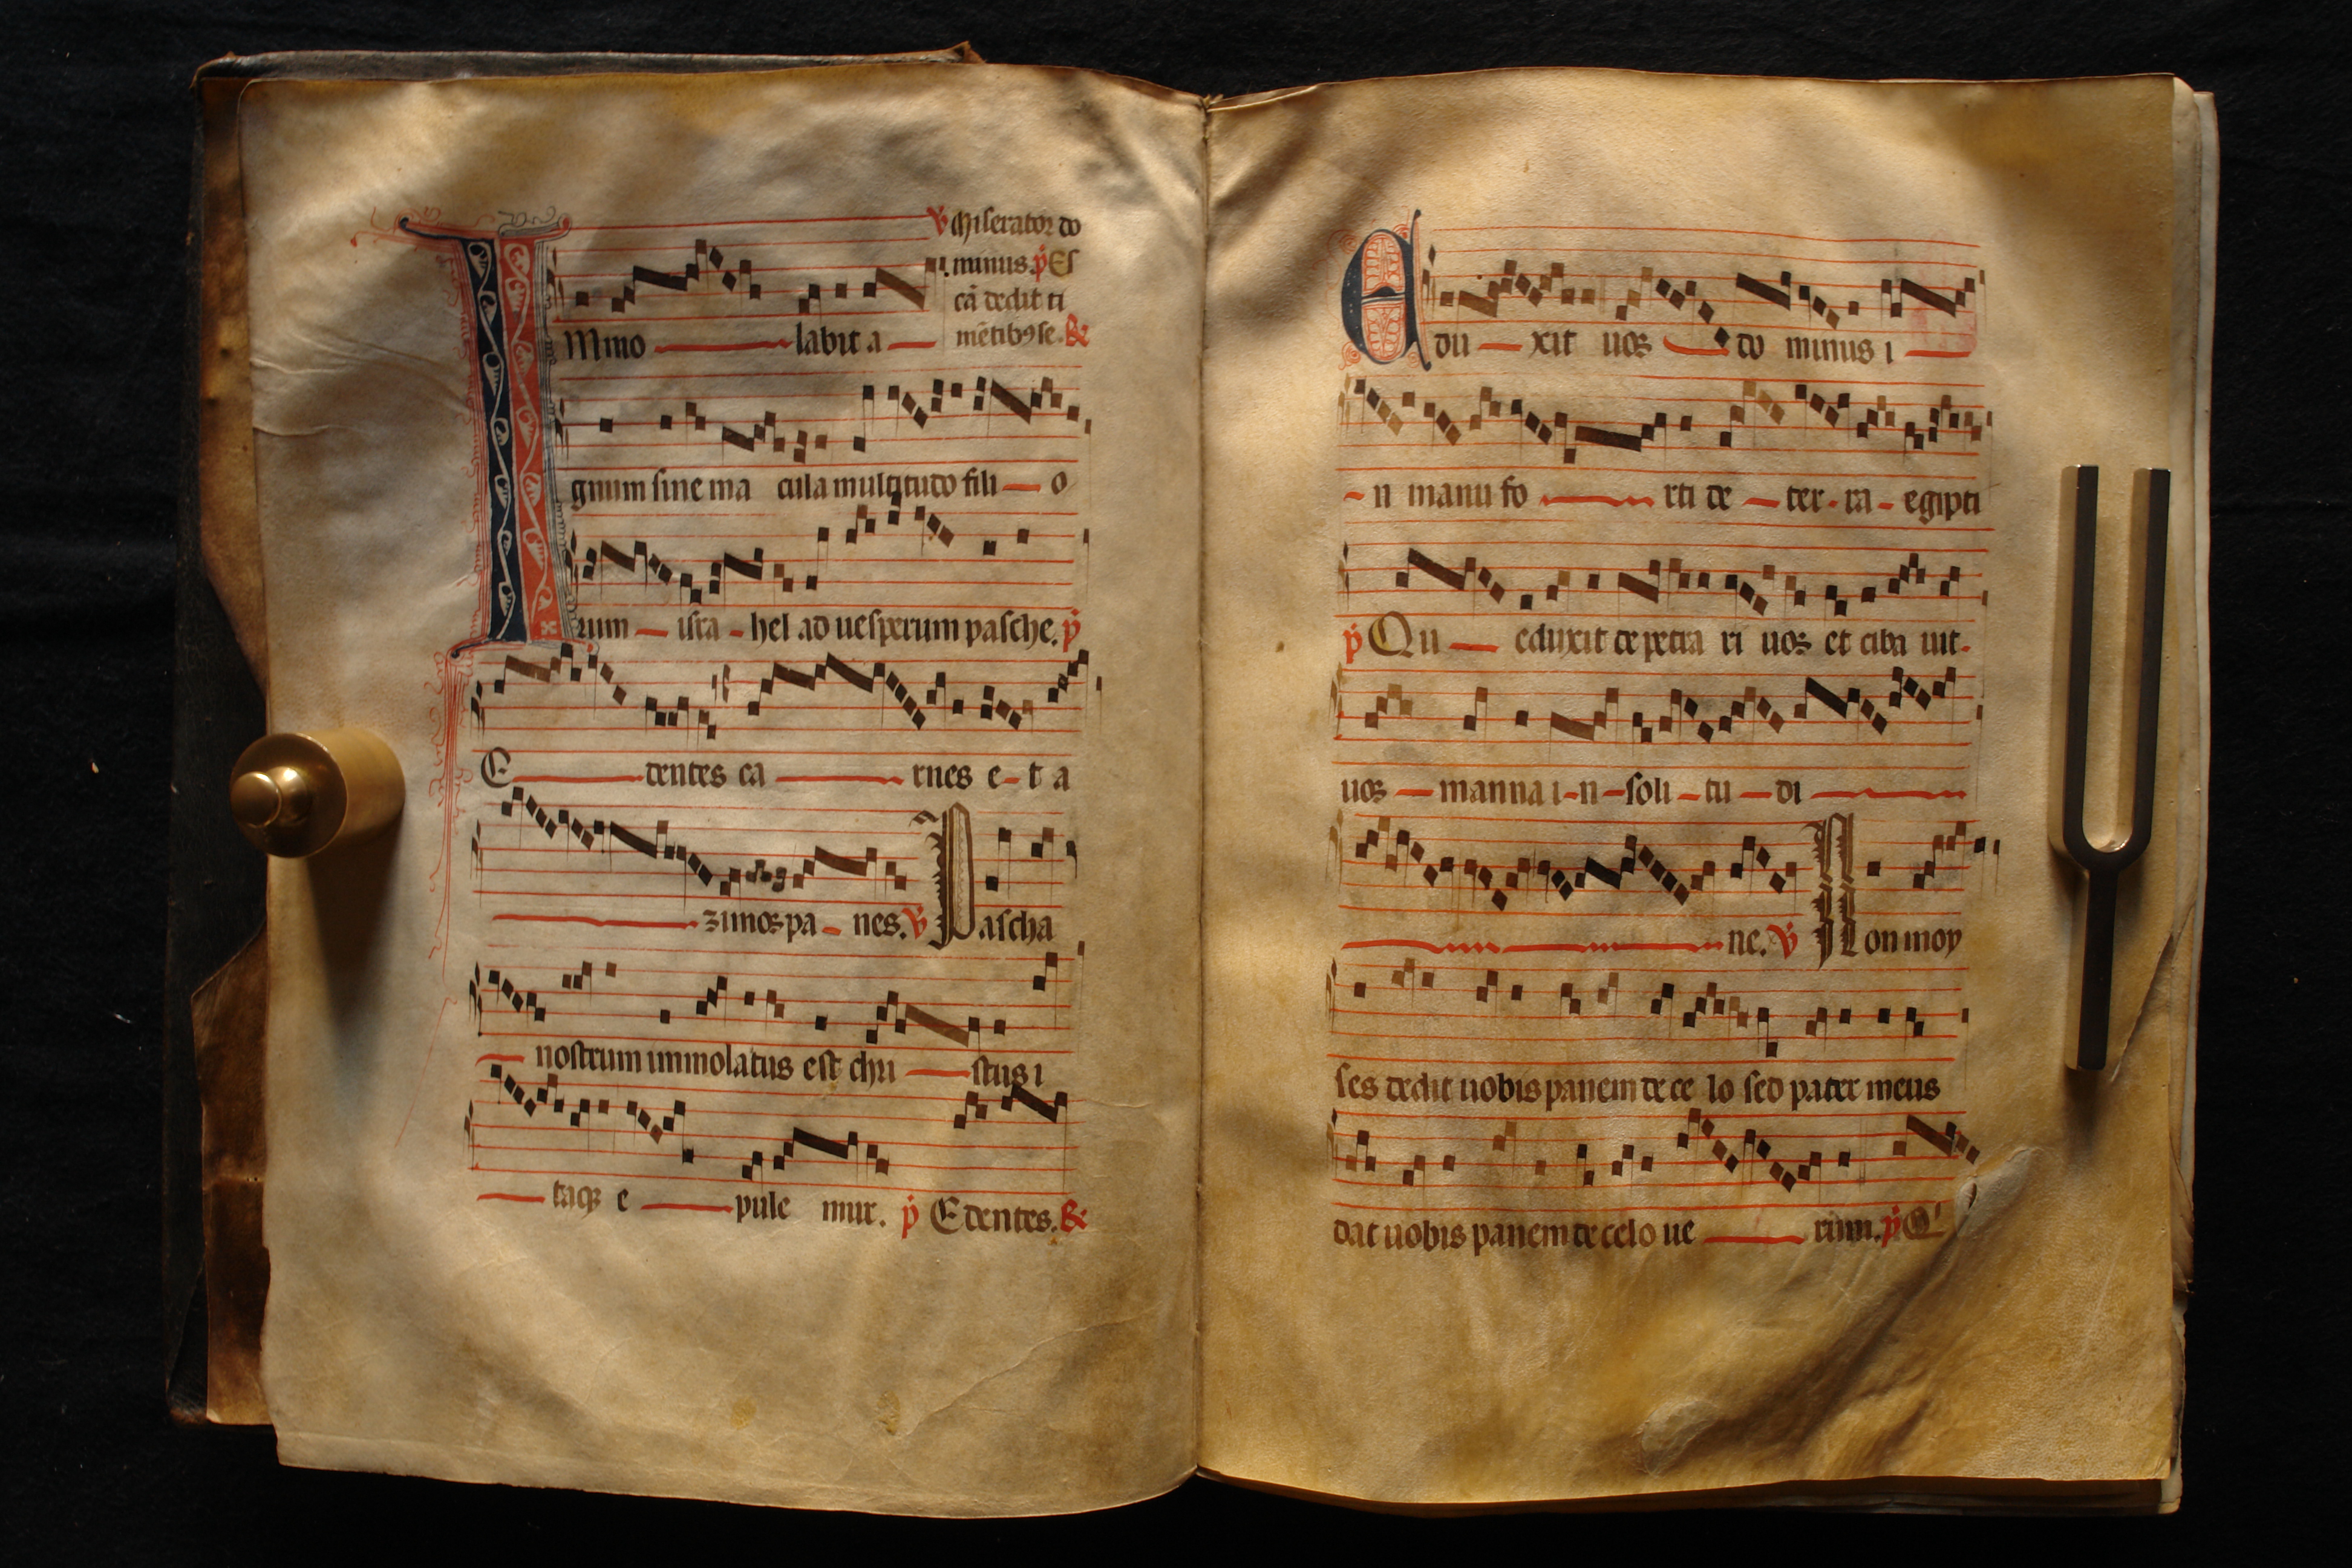 ℣ Miserator do
minus. p̄ Es
cā dedit ti
mētibꝯ se. &
IMmo labit a
gnum sine ma cula multitudo fili o
rum isra hel ad uesperum pasche. p̄
E dentes ca rnes e t a
zimos pa nes. ℣ Pascha
nostrum immolatus est chri stus i
taqꝫ e pule mur. p̄ Edentes. &
Edu xit uos do minus i
n manu fo rti de ter ra egipti
p̄ Qu eduxit de petra ri uos et ciba uit.
uos manna i n soli tu di
ne. ℣ Non moy
ses dedit uobis panem de ce lo sed pater meus
dat uobis panem de celo ue rum. p̄ Q'